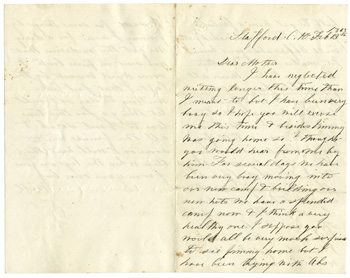 Stafford C. H. Feb
Dear Mother
I have neglected
writing longer this time than
I meant to but I have been very
busy so I hope you will excuse
me this time & besides Jimmy
was going home so I thought
you would hear from me by
him For several days we have
been very busy moving into
our new camp & building our
new huts We have a splendid
camp now & I think a very
healthy one I suppose you
would all be very much surprised
to see Jimmy home but I
have been trying with